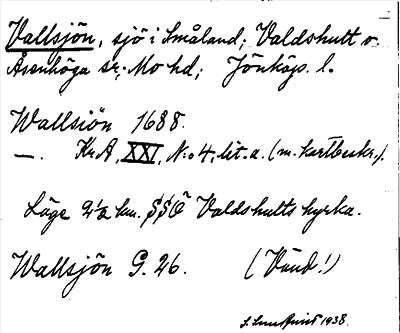 Vallsjön, sjö i Småland; Valdshult o.
Åsenhöga sr; Mo hd; Jönköp. l.
Wallsiön 1688.
—. Kr.A, XXI, N:o 4, lit. a. (m. kartbeskr.).
Läge 2 1/2 km. SSO Valdshults kyrka.
Wallsjön G. 26. (Vänd!)
1938.